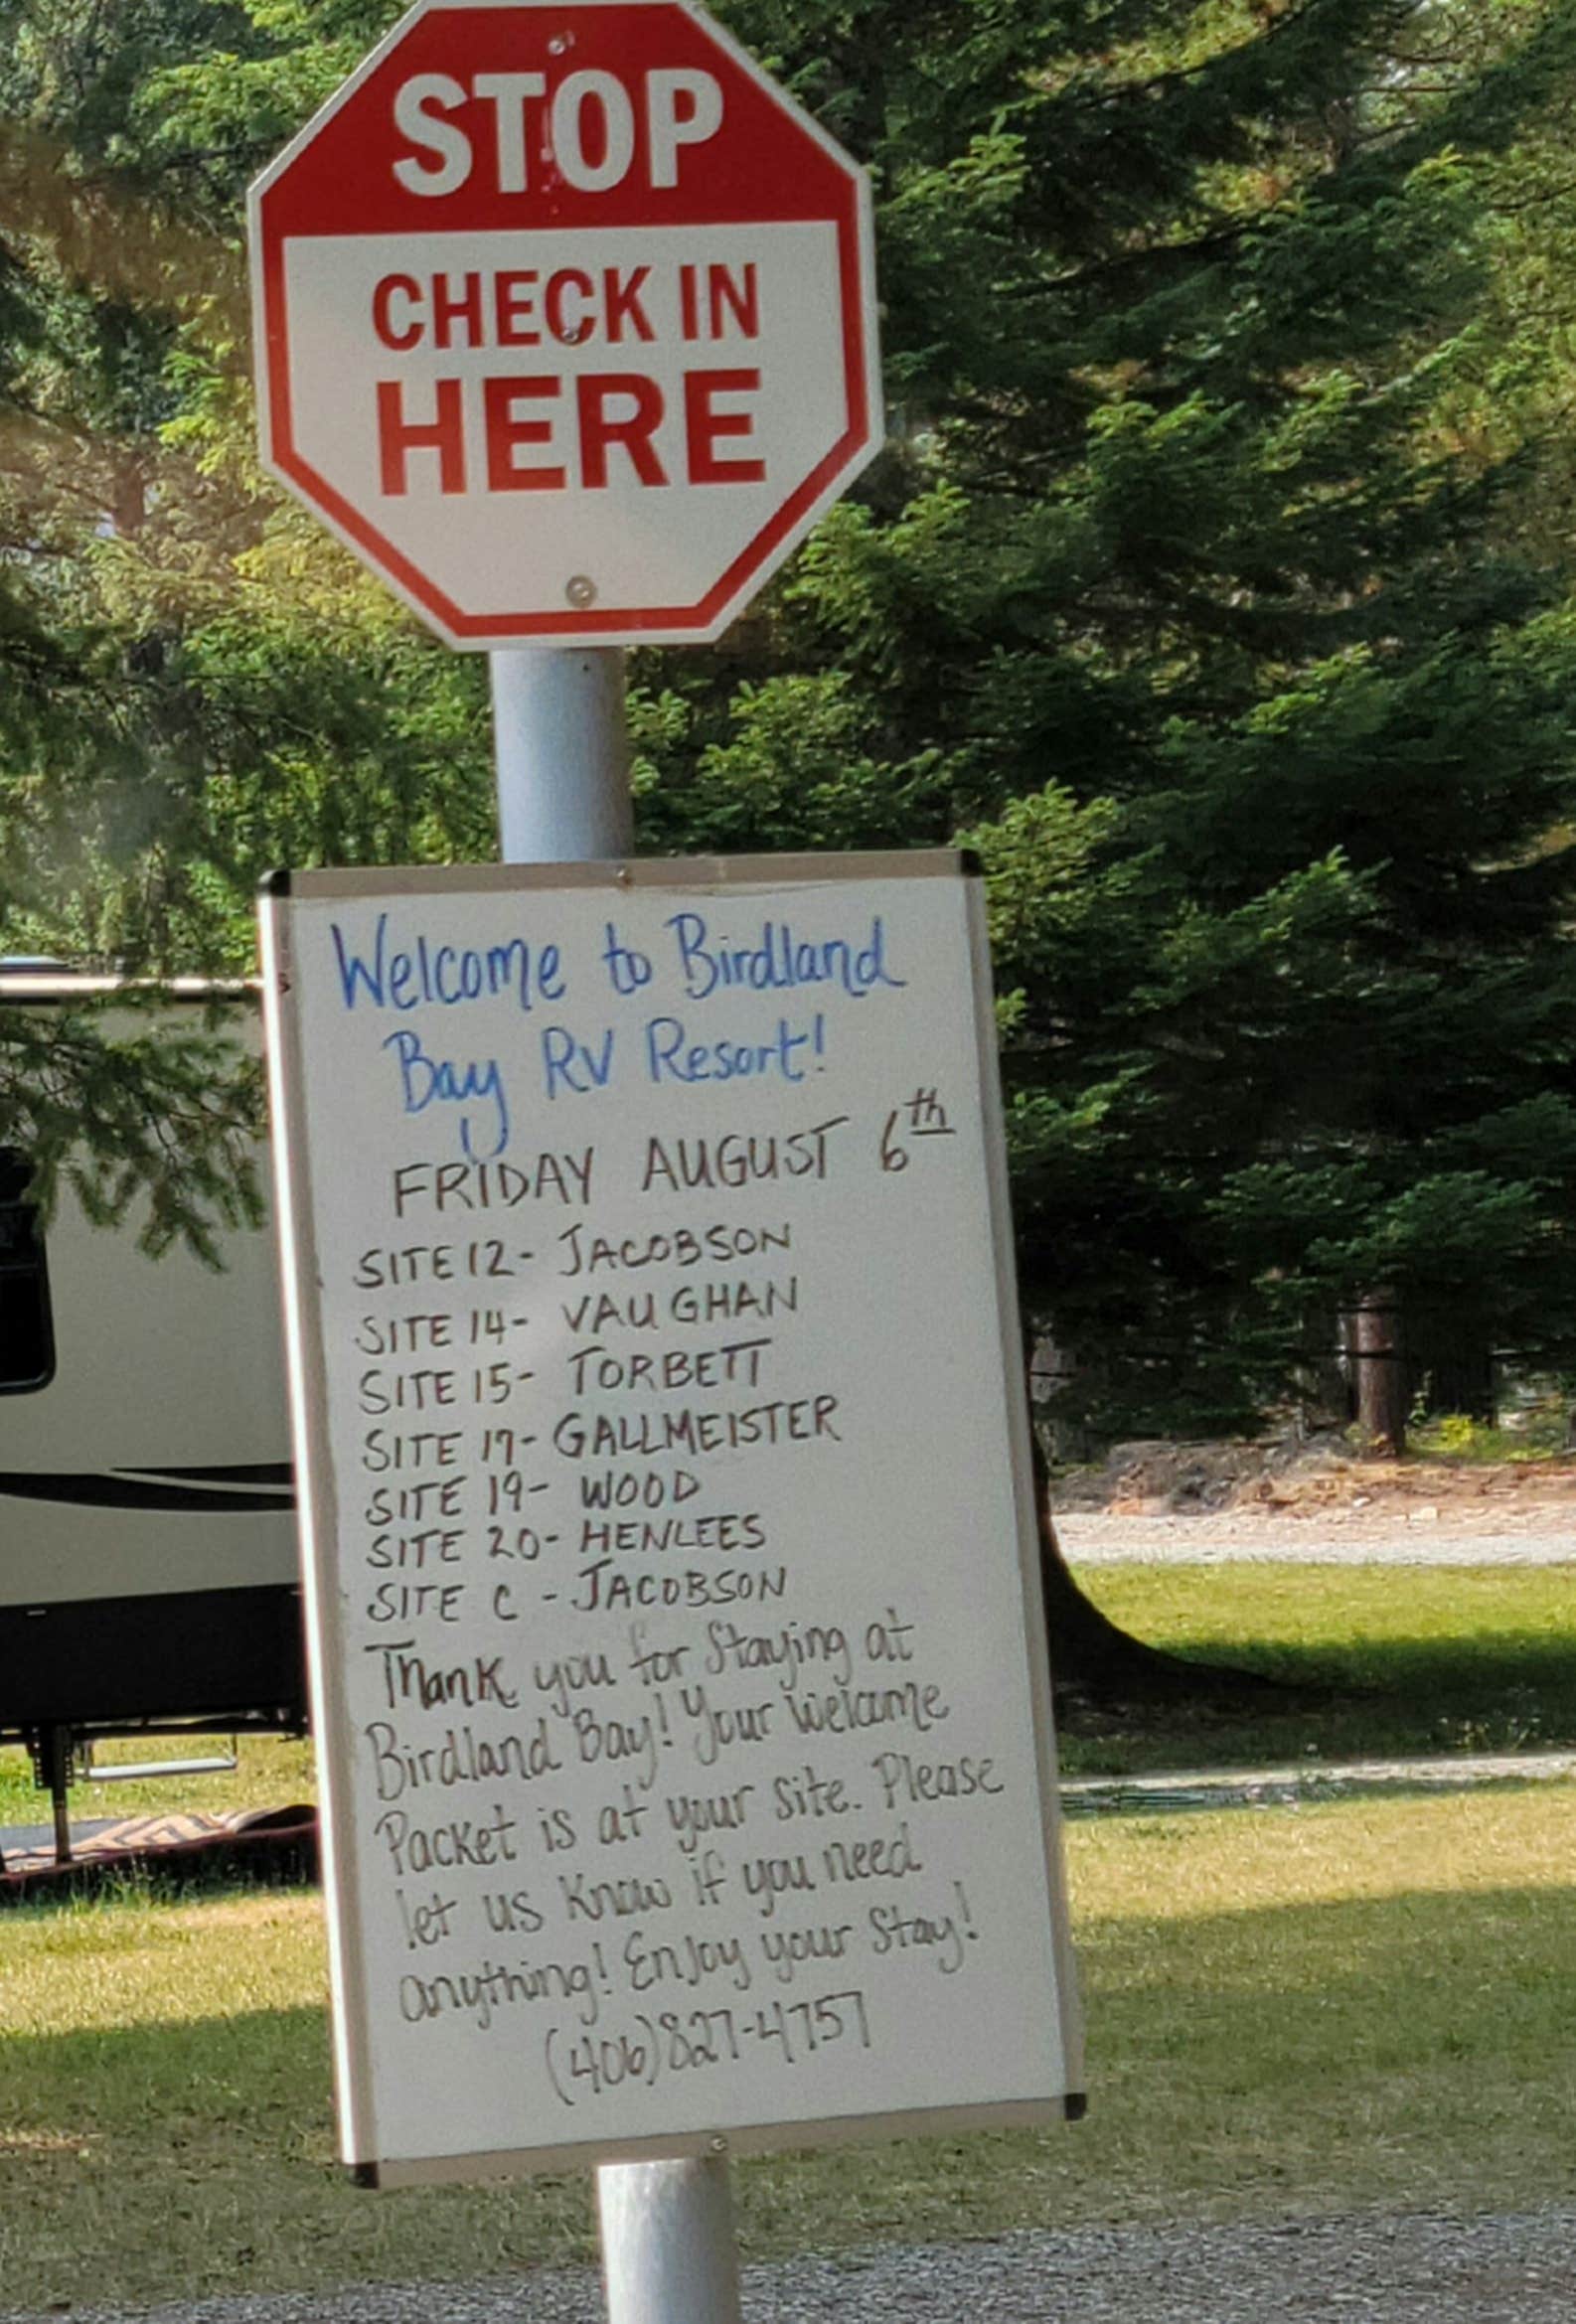 STOP
CHECK IN
HERE
Welcome to Birdland
Bay RV Resort!
FRIDAY AUGUST 6th
SITE 12- JACOBSON
SITE 14- VAUGHAN
SITE 15- TORBETT
SITE 17- GALLMEISTER
SITE 19- WOOD
SITE 20- HENLEES
SITE C - JACOBSON
Thank you for Staying at
Birdland Bay! Your Welcome
Packet is at your site. Please
let us know if you need
anything! Enjoy your Stay!
(406)827-4757